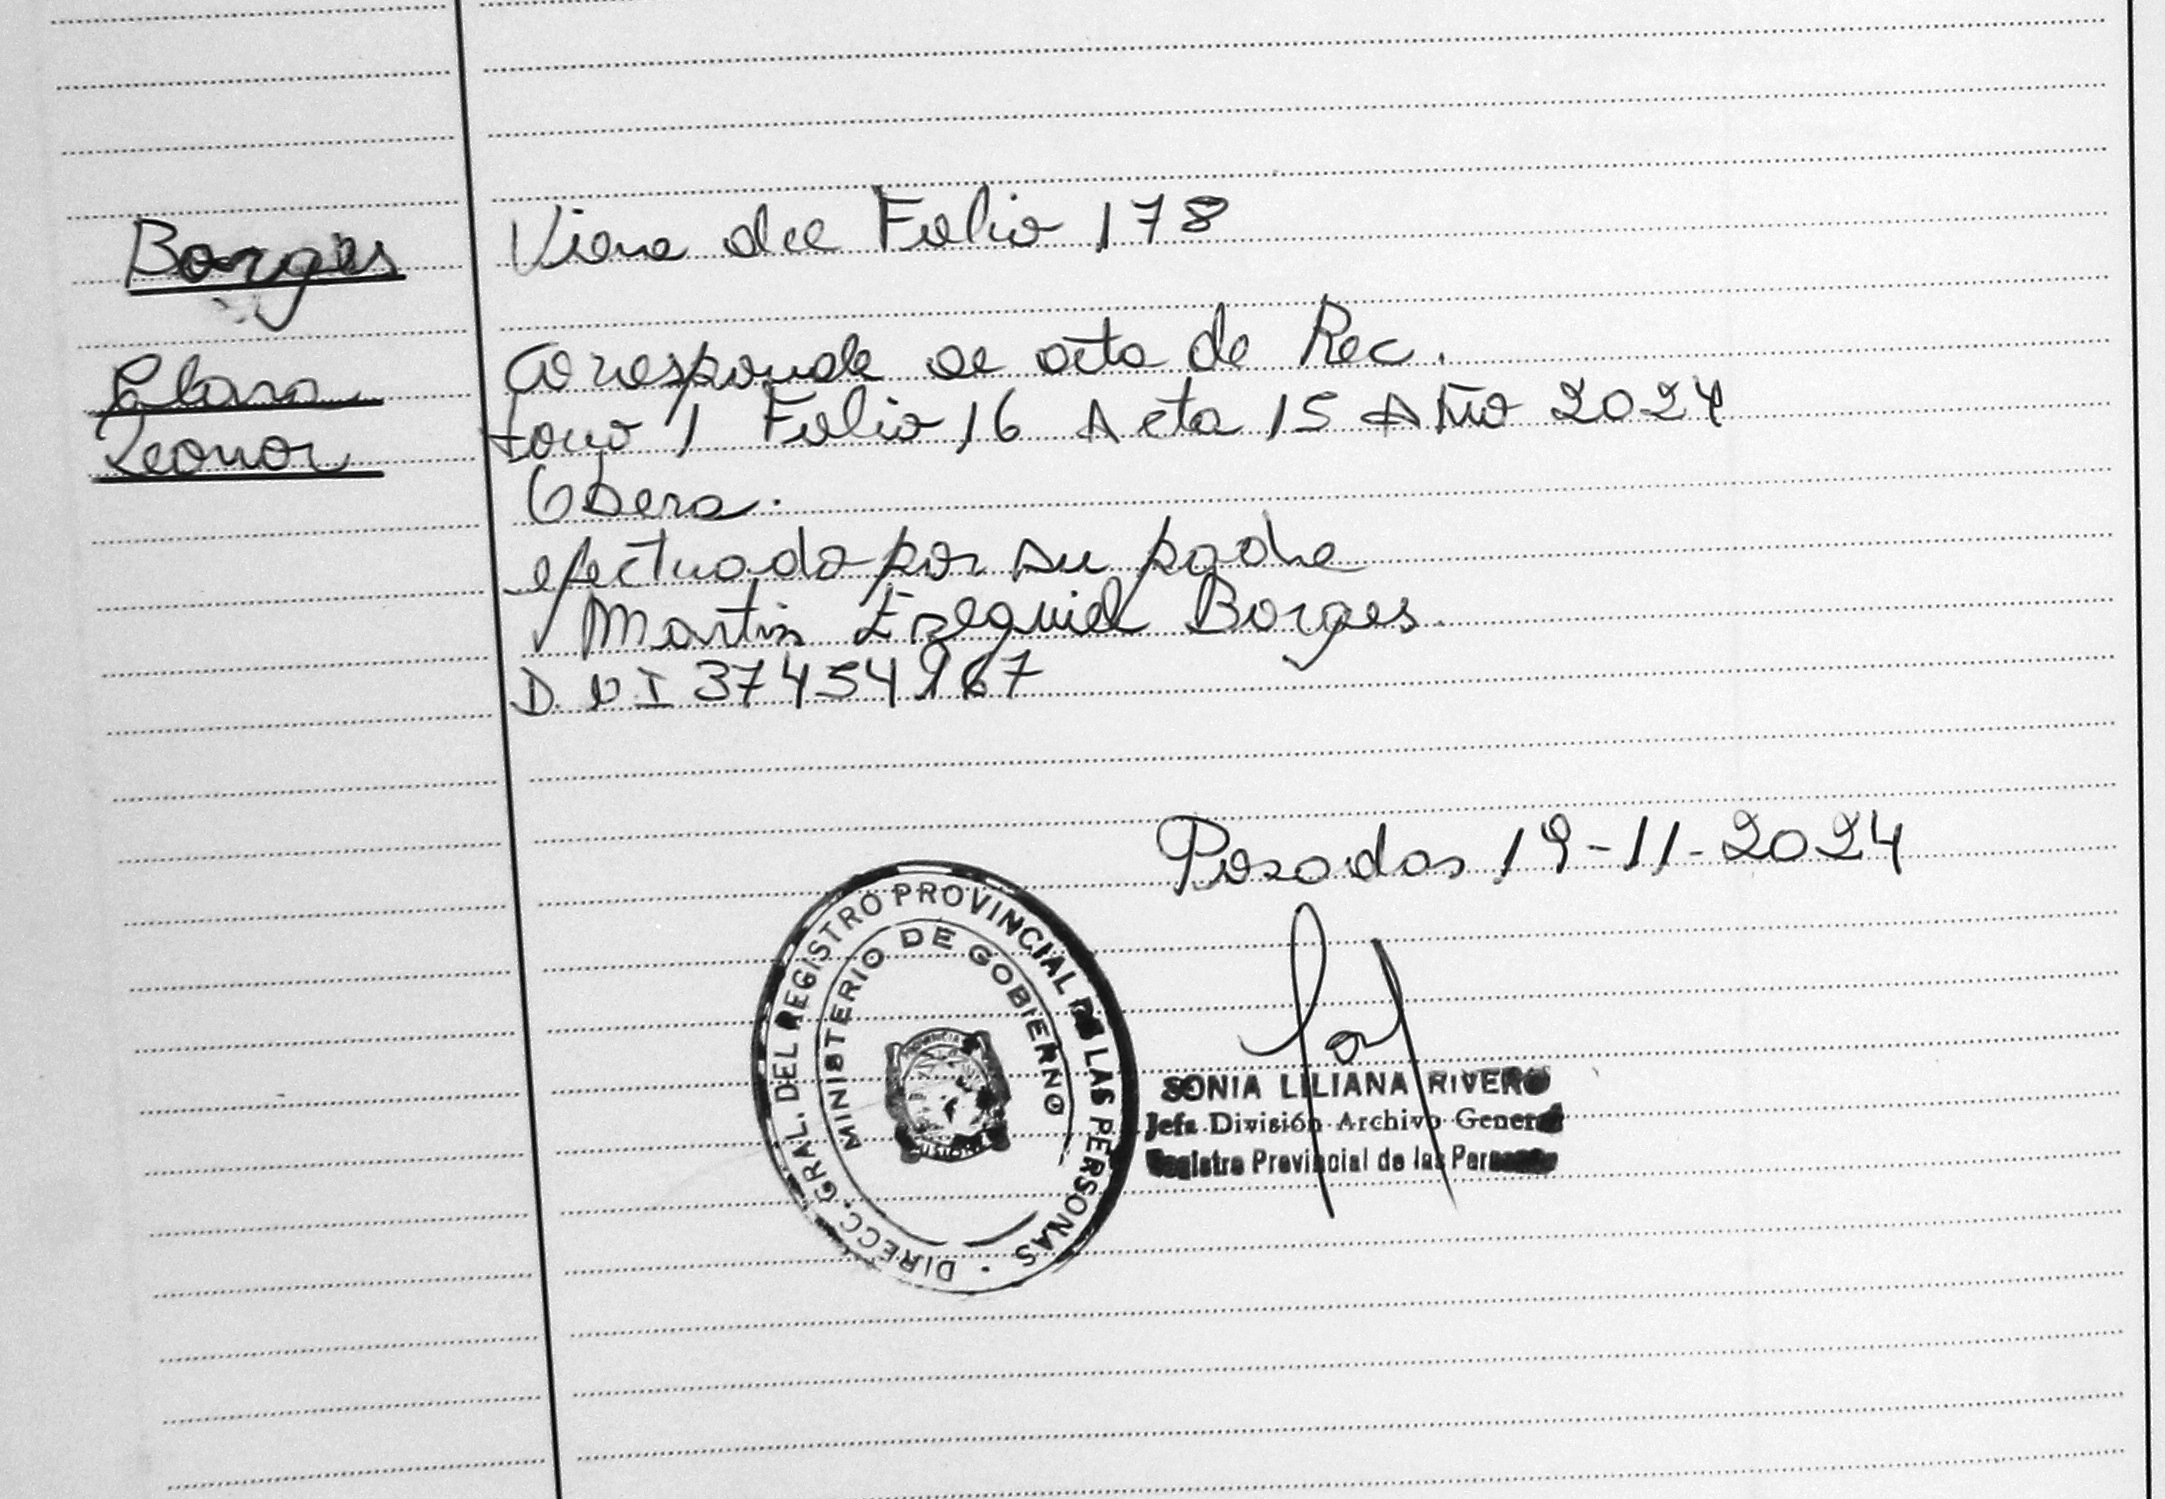 Borges
Clara
Leonor
Viene del Folio 178
Corresponde al acta de Rec.
tomo 1 Folio 16 Acta 15 Año 2024
Obera.
efectuado por su padre
Martin Ezequiel Borges.
D.N.I 37454967
Posadas 19-11-2024
DIRECC. GRAL. DEL REGISTRO PROVINCIAL DE LAS PERSONAS
MINISTERIO DE GOBIERNO
PROVINCIA
MISIONES
SONIA LILIANA RIVERO
Jefa División Archivo General
Registro Provincial de las Personas